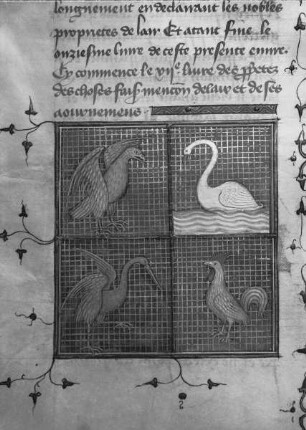 longnement en declarant les nobles
proprietes de lair Et atant fine le
onziesme liure de ceste presente euure.
Cy commence le xije. liure des
des choses fais mencon de lair et de ses
aournemens